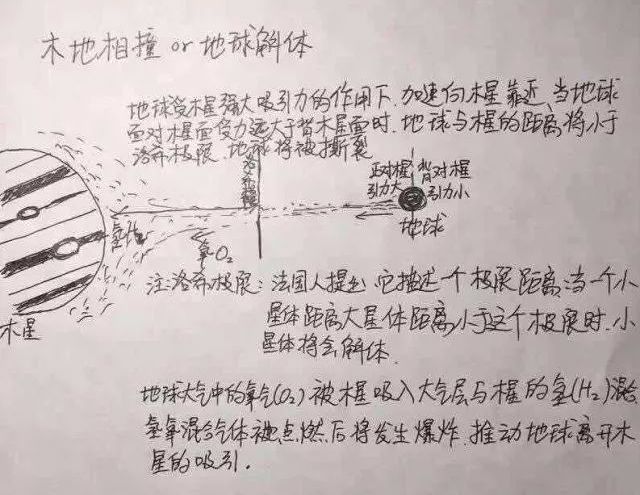 木地相撞 or 地球解体
地球受木星强大吸引力的作用下.加速向木星靠近、当地球
面对木星面受力远大于背木星面时.地球与木星的距离将小于
洛希极限.地球将被撕裂
洛希极限
正对木星
引力大
背对木星
引力小
地球
氢H₂
氧O₂
木星
注:洛希极限:法国人提出.它描述一个极限距离:当一个小
星体距离大星体距离小于这个极限时.小
星体将会解体.
地球大气中的氧气(O₂)被木星吸入大气层与木星的氢(H₂)混合
氢氧混合气体被点燃后将发生爆炸.推动地球离开木
星的吸引.